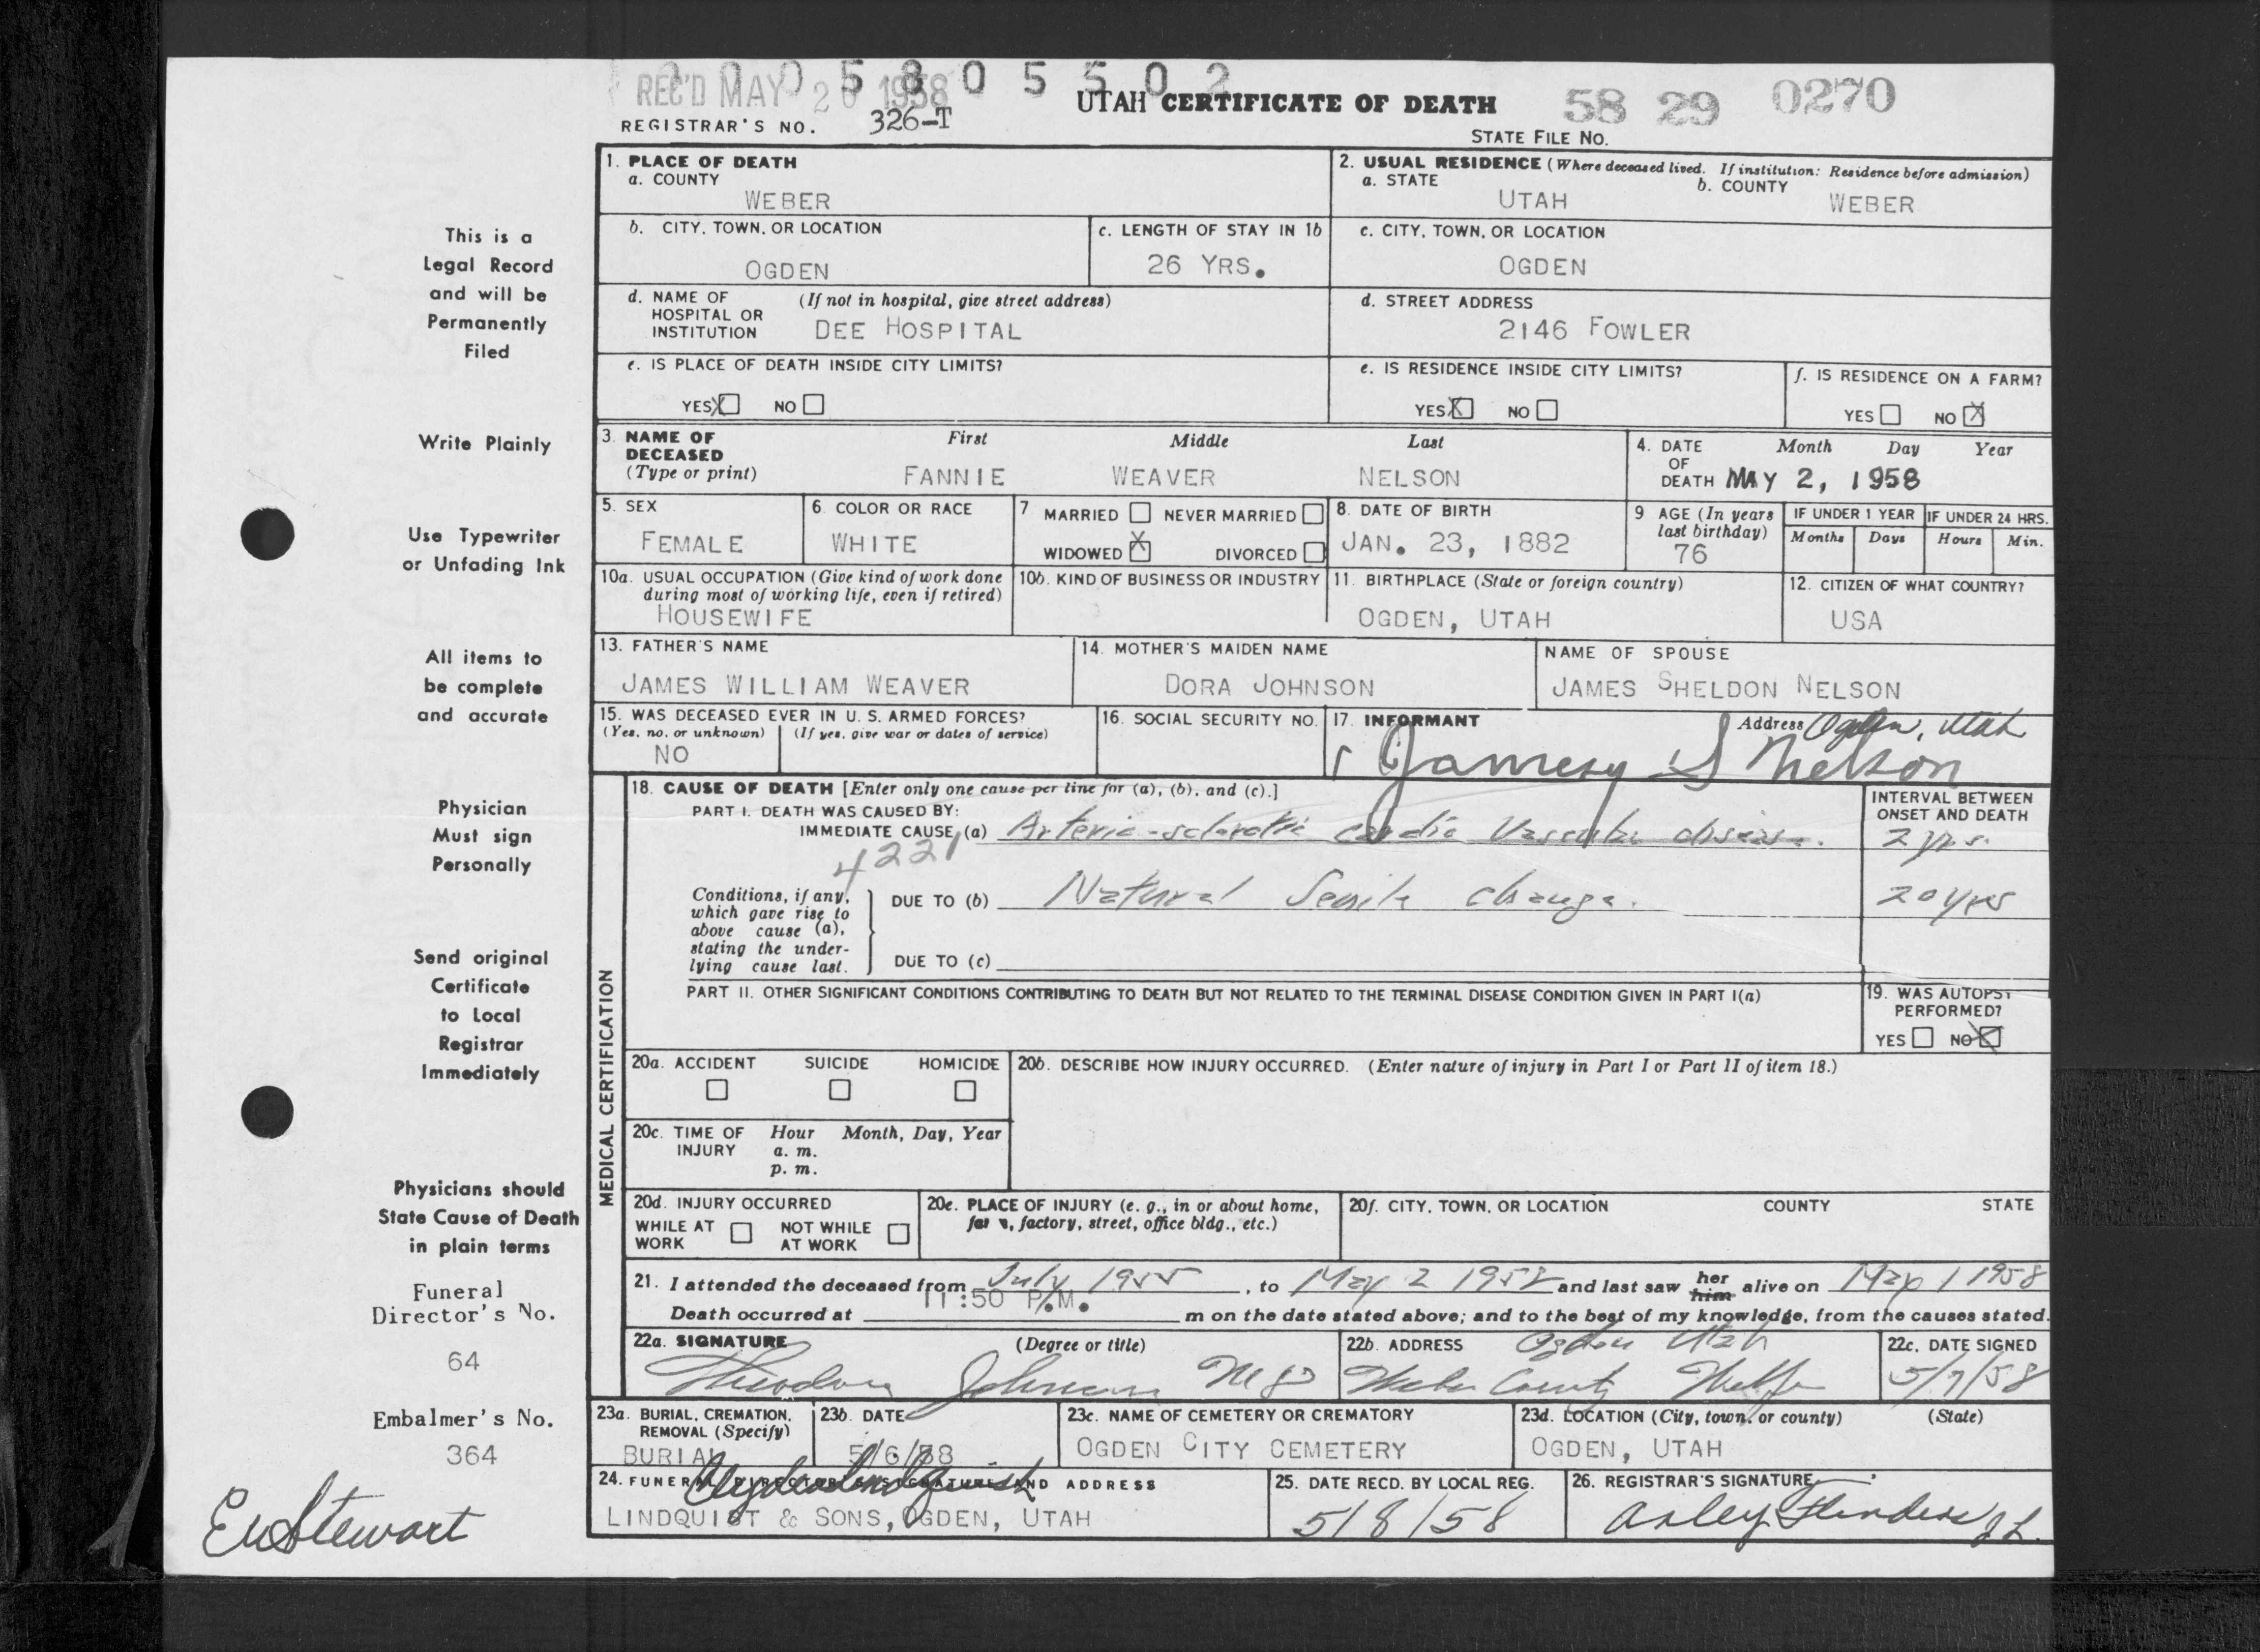 2 0 0 5 8 0 5 5 0 2
REC'D MAY 20 1958
UTAH CERTIFICATE OF DEATH
58 29 0270
REGISTRAR'S NO. 326-T
STATE FILE NO.
This is a
Legal Record
and will be
Permanently
Filed
Write Plainly
Use Typewriter
or Unfading Ink
All items to
be complete
and accurate
Physician
Must sign
Personally
Send original
Certificate
to Local
Registrar
Immediately
Physicians should
State Cause of Death
in plain terms
Funeral
Director's No.
64
Embalmer's No.
364
EW Stewart
1. PLACE OF DEATH
a. COUNTY
WEBER
2. USUAL RESIDENCE (Where deceased lived. If institution: Residence before admission)
a. STATE
UTAH
b. COUNTY
WEBER
b. CITY, TOWN, OR LOCATION
OGDEN
c. LENGTH OF STAY IN 1b
26 YRS.
c. CITY, TOWN, OR LOCATION
OGDEN
d. NAME OF (If not in hospital, give street address)
HOSPITAL OR
INSTITUTION DEE HOSPITAL
d. STREET ADDRESS
2146 FOWLER
e. IS PLACE OF DEATH INSIDE CITY LIMITS?
YES X NO
e. IS RESIDENCE INSIDE CITY LIMITS?
YES X NO
f. IS RESIDENCE ON A FARM?
YES NO X
3. NAME OF DECEASED (Type or print)
First Middle Last
FANNIE WEAVER NELSON
4. DATE OF DEATH
Month Day Year
MAY 2, 1958
5. SEX
FEMALE
6. COLOR OR RACE
WHITE
7 MARRIED NEVER MARRIED
WIDOWED X DIVORCED
8. DATE OF BIRTH
JAN. 23, 1882
9 AGE (In years
last birthday)
76
IF UNDER 1 YEAR IF UNDER 24 HRS.
Months Days Hours Min.
10a. USUAL OCCUPATION (Give kind of work done
during most of working life, even if retired)
HOUSEWIFE
10b. KIND OF BUSINESS OR INDUSTRY
11. BIRTHPLACE (State or foreign country)
OGDEN, UTAH
12. CITIZEN OF WHAT COUNTRY?
USA
13. FATHER'S NAME
JAMES WILLIAM WEAVER
14. MOTHER'S MAIDEN NAME
DORA JOHNSON
NAME OF SPOUSE
JAMES SHELDON NELSON
15. WAS DECEASED EVER IN U. S. ARMED FORCES?
(Yes, no, or unknown) (If yes, give war or dates of service)
NO
16. SOCIAL SECURITY NO.
17. INFORMANT Address Ogden, Utah
S Nelson
MEDICAL CERTIFICATION
18. CAUSE OF DEATH [Enter only one cause per line for (a), (b), and (c).]
PART I. DEATH WAS CAUSED BY:
IMMEDIATE CAUSE (a) Arterio-sclerotic cardio Vascular disease.
4221
INTERVAL BETWEEN
ONSET AND DEATH
2 yrs.
Conditions, if any,
which gave rise to
above cause (a),
stating the under-
lying cause last.
DUE TO (b) Natural Senile change.
20 yrs
DUE TO (c)
PART II. OTHER SIGNIFICANT CONDITIONS CONTRIBUTING TO DEATH BUT NOT RELATED TO THE TERMINAL DISEASE CONDITION GIVEN IN PART I(a)
19. WAS AUTOPSY
PERFORMED?
YES NO X
20a. ACCIDENT SUICIDE HOMICIDE
20b. DESCRIBE HOW INJURY OCCURRED. (Enter nature of injury in Part I or Part II of item 18.)
20c. TIME OF INJURY
Hour Month, Day, Year
a. m.
p. m.
20d. INJURY OCCURRED
WHILE AT WORK NOT WHILE AT WORK
20e. PLACE OF INJURY (e. g., in or about home,
farm, factory, street, office bldg., etc.)
20f. CITY, TOWN, OR LOCATION COUNTY STATE
21. I attended the deceased from July 1955, to May 2 1958 and last saw her him alive on May 1 1958
Death occurred at 11:50 P.M. m on the date stated above; and to the best of my knowledge, from the causes stated.
22a. SIGNATURE (Degree or title)
Theodore Johnson MD
22b. ADDRESS Ogden Utah
Weber County
22c. DATE SIGNED
5/7/58
23a. BURIAL, CREMATION,
REMOVAL (Specify)
BURIAL
23b. DATE
5/6/58
23c. NAME OF CEMETERY OR CREMATORY
OGDEN CITY CEMETERY
23d. LOCATION (City, town, or county) (State)
OGDEN, UTAH
24. FUNERAL DIRECTOR'S SIGNATURE AND ADDRESS
LINDQUIST & SONS, OGDEN, UTAH
25. DATE RECD. BY LOCAL REG.
5/8/58
26. REGISTRAR'S SIGNATURE
Arley Flinders